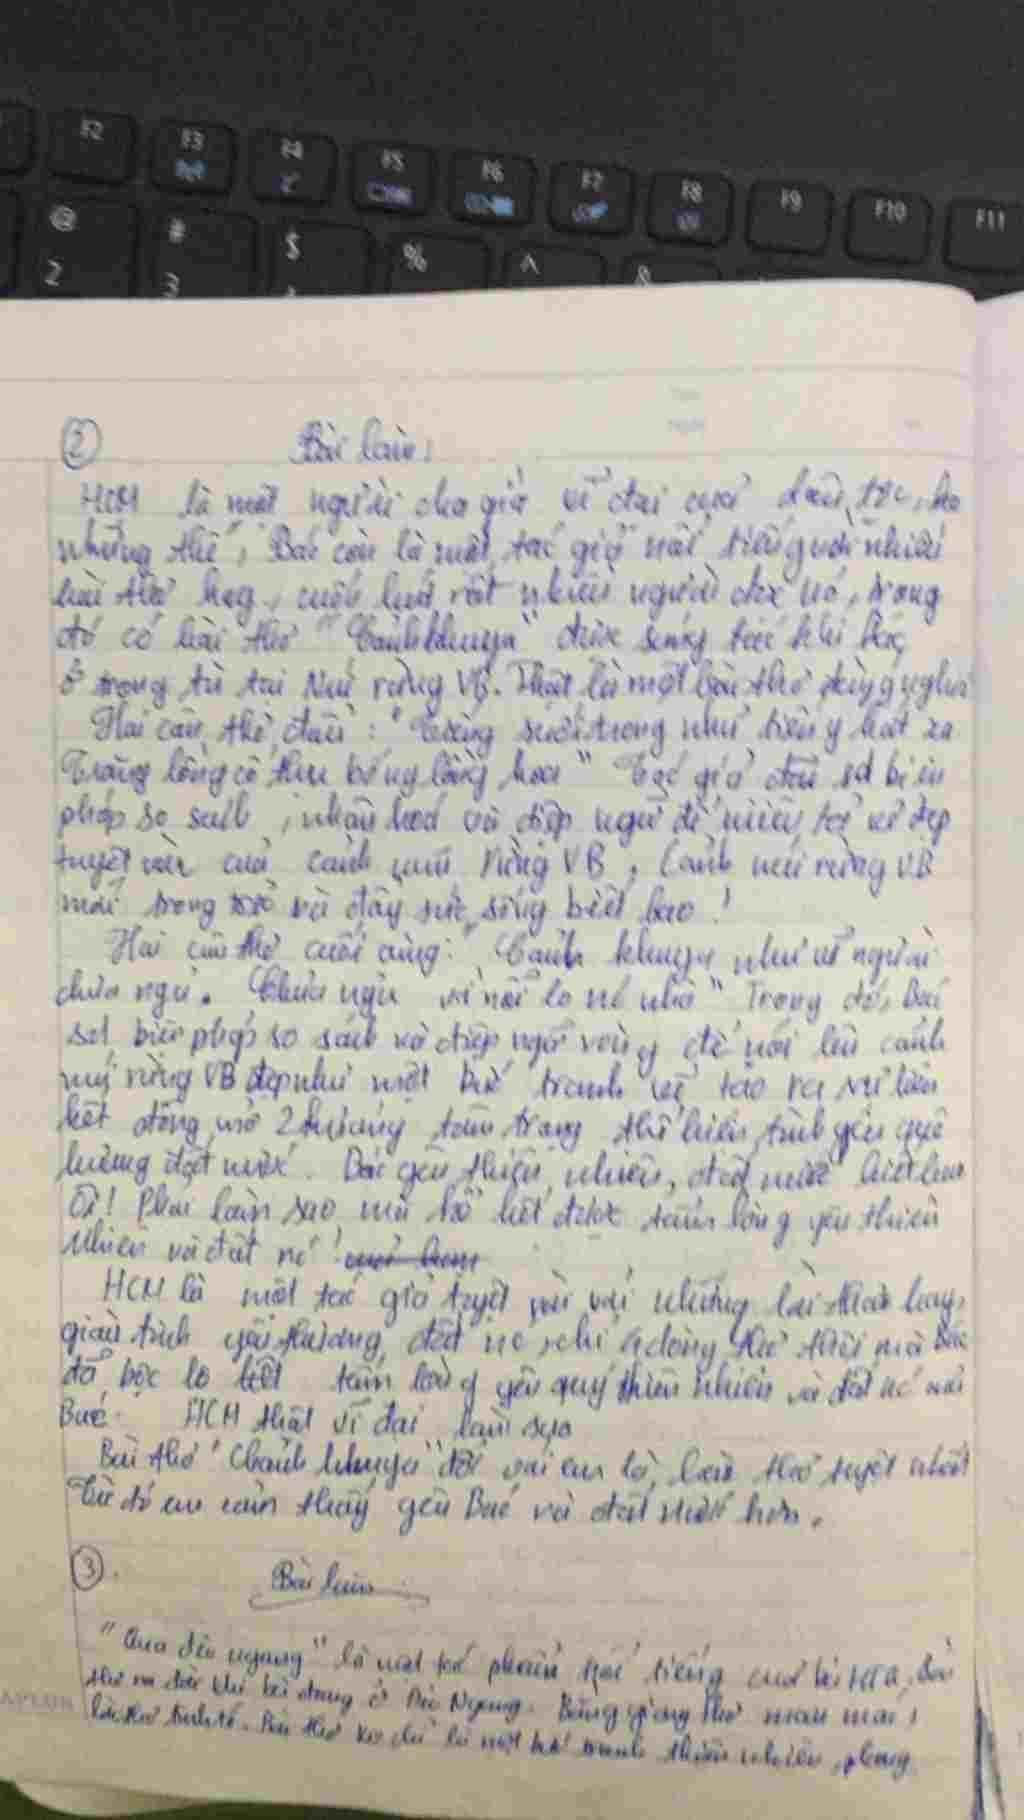 F2 F3 F4 F5 F6 F7 F8 F9 F10 F11
@ # $ % ^ &
2 3
2 Bài làm:
HCM là một người cha già vĩ đại của dân tộc, ko
những thế, Bác còn là một tác giả nổi tiếng với nhiều
bài thơ hay, cuốn hút rất nhiều người đọc nó, trong
đó có bài thơ "Cảnh khuya" được sáng tác khi Bác
ở trong tù tại Núi rừng VB. Thật là một bài thơ đầy ý nghĩa
Hai câu thơ đầu: "Tiếng suối trong như tiếng hát xa
Trăng lồng cổ thụ bóng lồng hoa" Tác giả đã sd biện
pháp so sánh, nhân hoá và điệp ngữ để miêu tả vẻ đẹp
tuyệt vời của cảnh núi rừng VB, Cảnh núi rừng VB
mới trong trẻo và đầy sức sống biết bao!
Hai câu thơ cuối cùng: "Cảnh khuya như vẽ người
chưa ngủ. Chưa ngủ vì nỗi lo nc nhà" Trong đó, Bác
sd biện pháp so sánh và điệp ngữ vòng để nói lên cảnh
núi rừng VB đẹp như một bức tranh vẽ tạo ra sự liên
kết đồng mở 2 tâm trạng thể hiện tình yêu quê
hương đất nước. Bác yêu thiên nhiên, đất nước biết bao
Ôi! Phải làm sao mà kể hết được tấm lòng yêu thiên
nhiên và đất nc!
HCM là một tác giả tuyệt vời với những bài thơ hay,
giàu tình yêu thương đất nc, chỉ 4 dòng thơ thôi mà Bác
đã bộc lộ hết tấm lòng yêu quý thiên nhiên và đất nc của
Bác. HCM thật vĩ đại làm sao
Bài thơ "Cảnh khuya" đối với em là bài thơ tuyệt nhất
Từ đó em cảm thấy yêu Bác và đất nước hơn.
3. Bài làm
"Qua đèo ngang" là một tác phẩm nổi tiếng của bà HTQ, bài
thơ ra đời khi bà đang ở Đèo Ngang. Bằng giọng thơ man mác,
bài thơ ko chỉ là một bức tranh thiên nhiên, phong